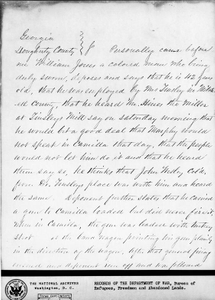 Georgia
Dougherty County } Personally came before
me William Jones a colored man who being
duly sworn, deposes and says that he is 42 years
old, that he was employed by Mr Tinsley in Mitch
ell County, that he heard the Miller
at Tinsleys Mill say on Saturday morning that
he would bet a good deal that Murphy would
not speak in Camilla that day, that the people
would not let him do it and that he heard
them say so, he thinks that John
from Dr. Tinsleys place was with him and heard
the same. Deponent further states that he carried
a gun to Camilla loaded but did not fire it
when in Camilla, the gun was loaded with
shot the band wagon
in the direction of the wagon, after that general firing
off and was followed
THE NATIONAL ARCHIVES
Washington, D. C.
RECORDS OF THE DEPARTMENT OF WAR, Bureau of
Refugees, Freedmen and Abandoned Lands.